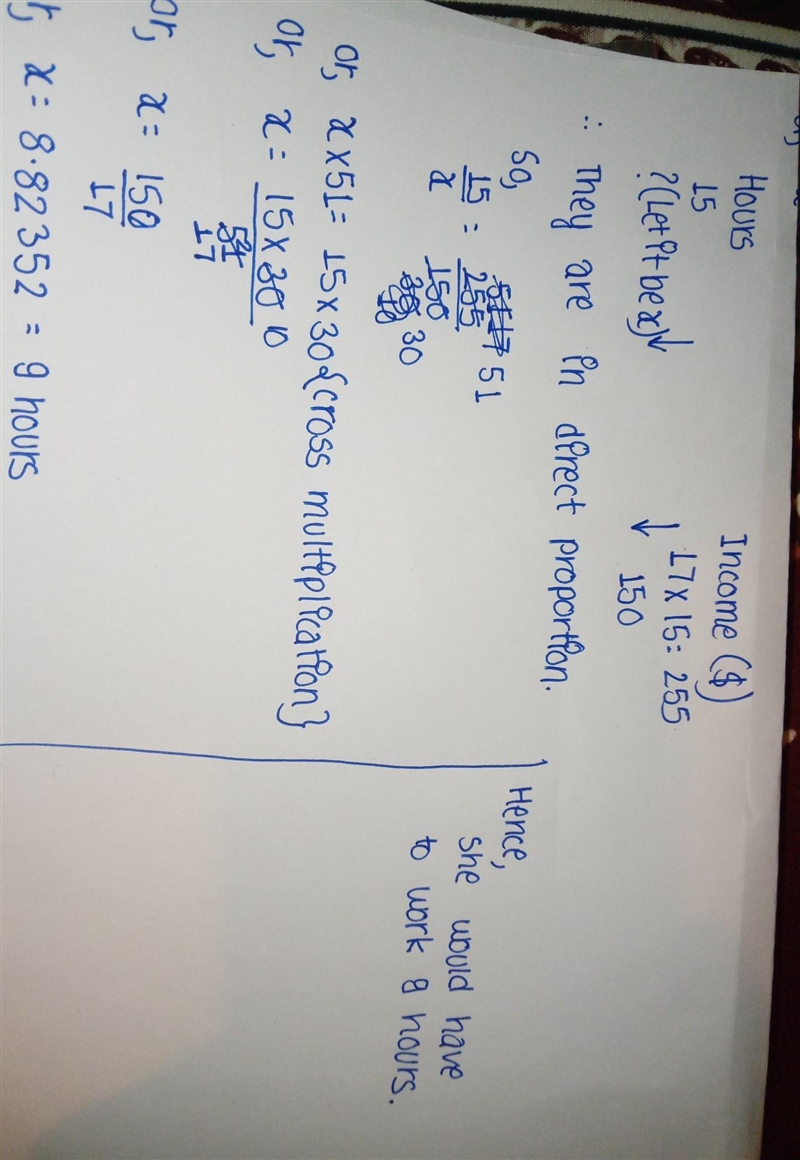 Hours Income ($)
15 17 x 15 = 255
?(Let it be x)↓ ↓ 150
∴ They are in direct proportion.
So,
15/x = 255/150 51
30
or, x x 51 = 15 x 30 {cross multiplication}
or, x = 15 x 30 10
51
17
or, x = 150/17
x = 8.82352 = 9 hours
Hence,
she would have
to work 9 hours.